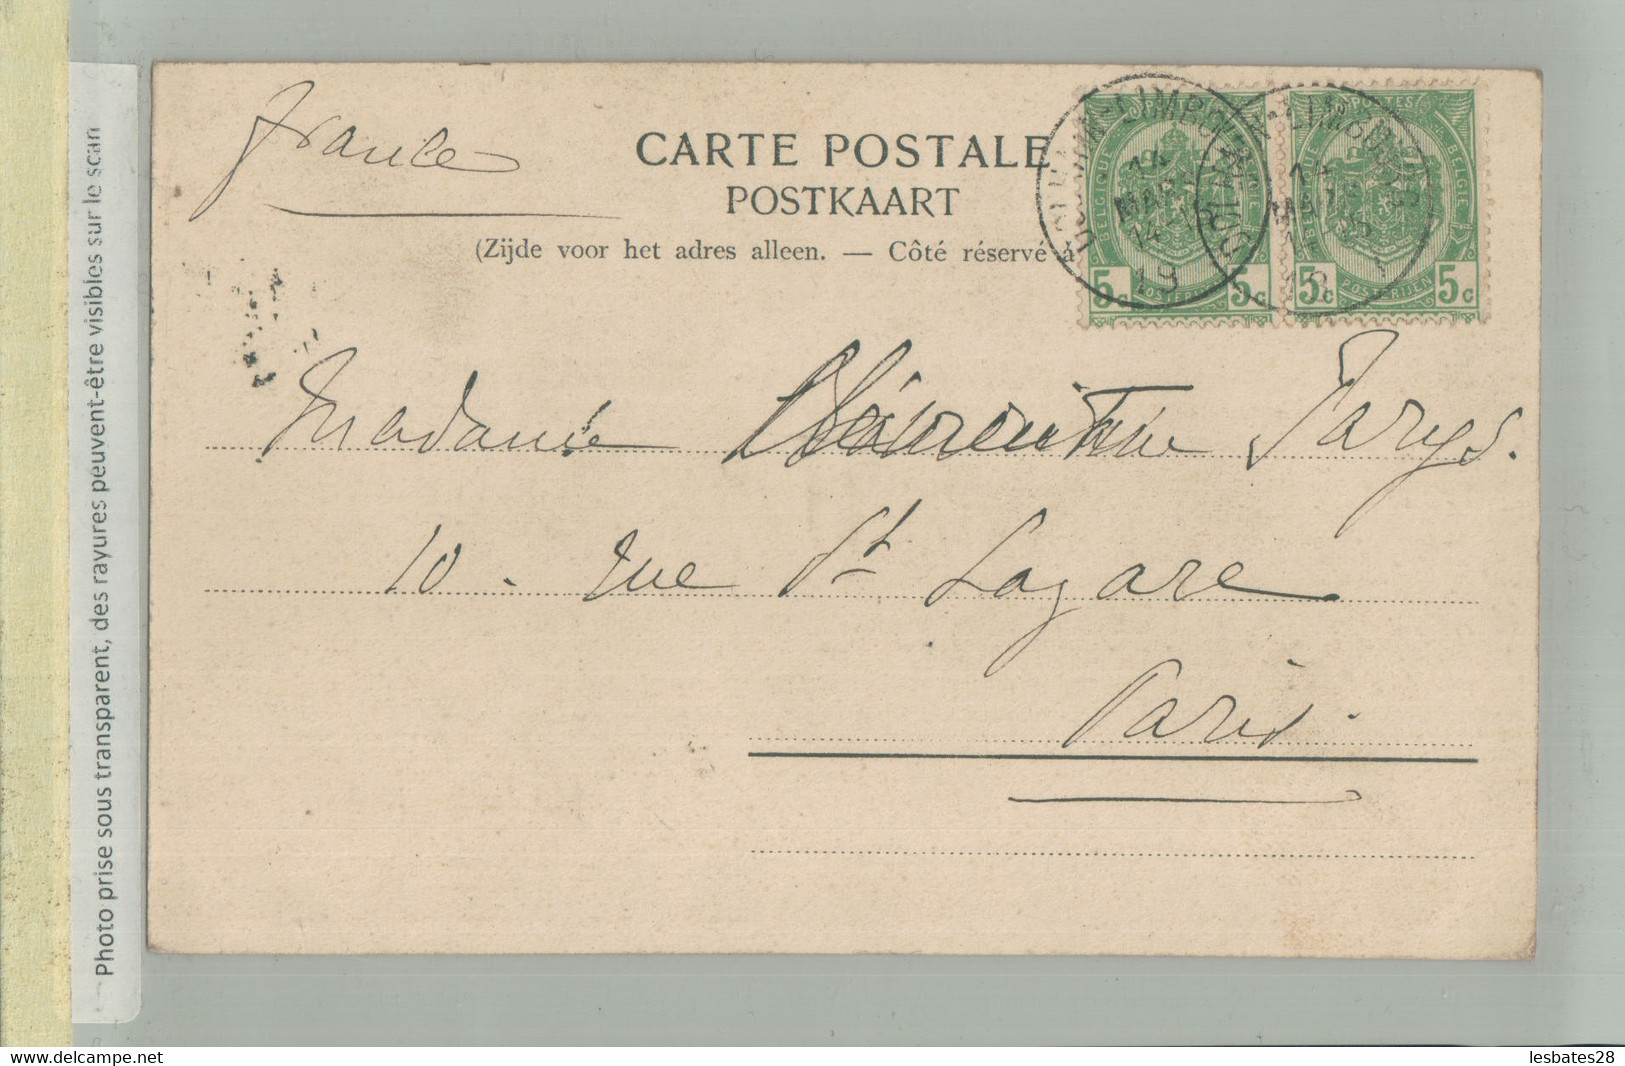 France
CARTE POSTALE
POSTKAART
(Zijde voor het adres alleen. — Côté réservé à
BELGIQUE POSTES BELGIE
5c POSTERIJEN 5c
5c POSTERIJEN 5c
14
MARS
14-
19
Madame Parys.
10 - rue St Lazare
Paris.
Photo prise sous transparent, des rayures peuvent-être visibles sur le scan
les-bates28.delcampe.net
lesbates28